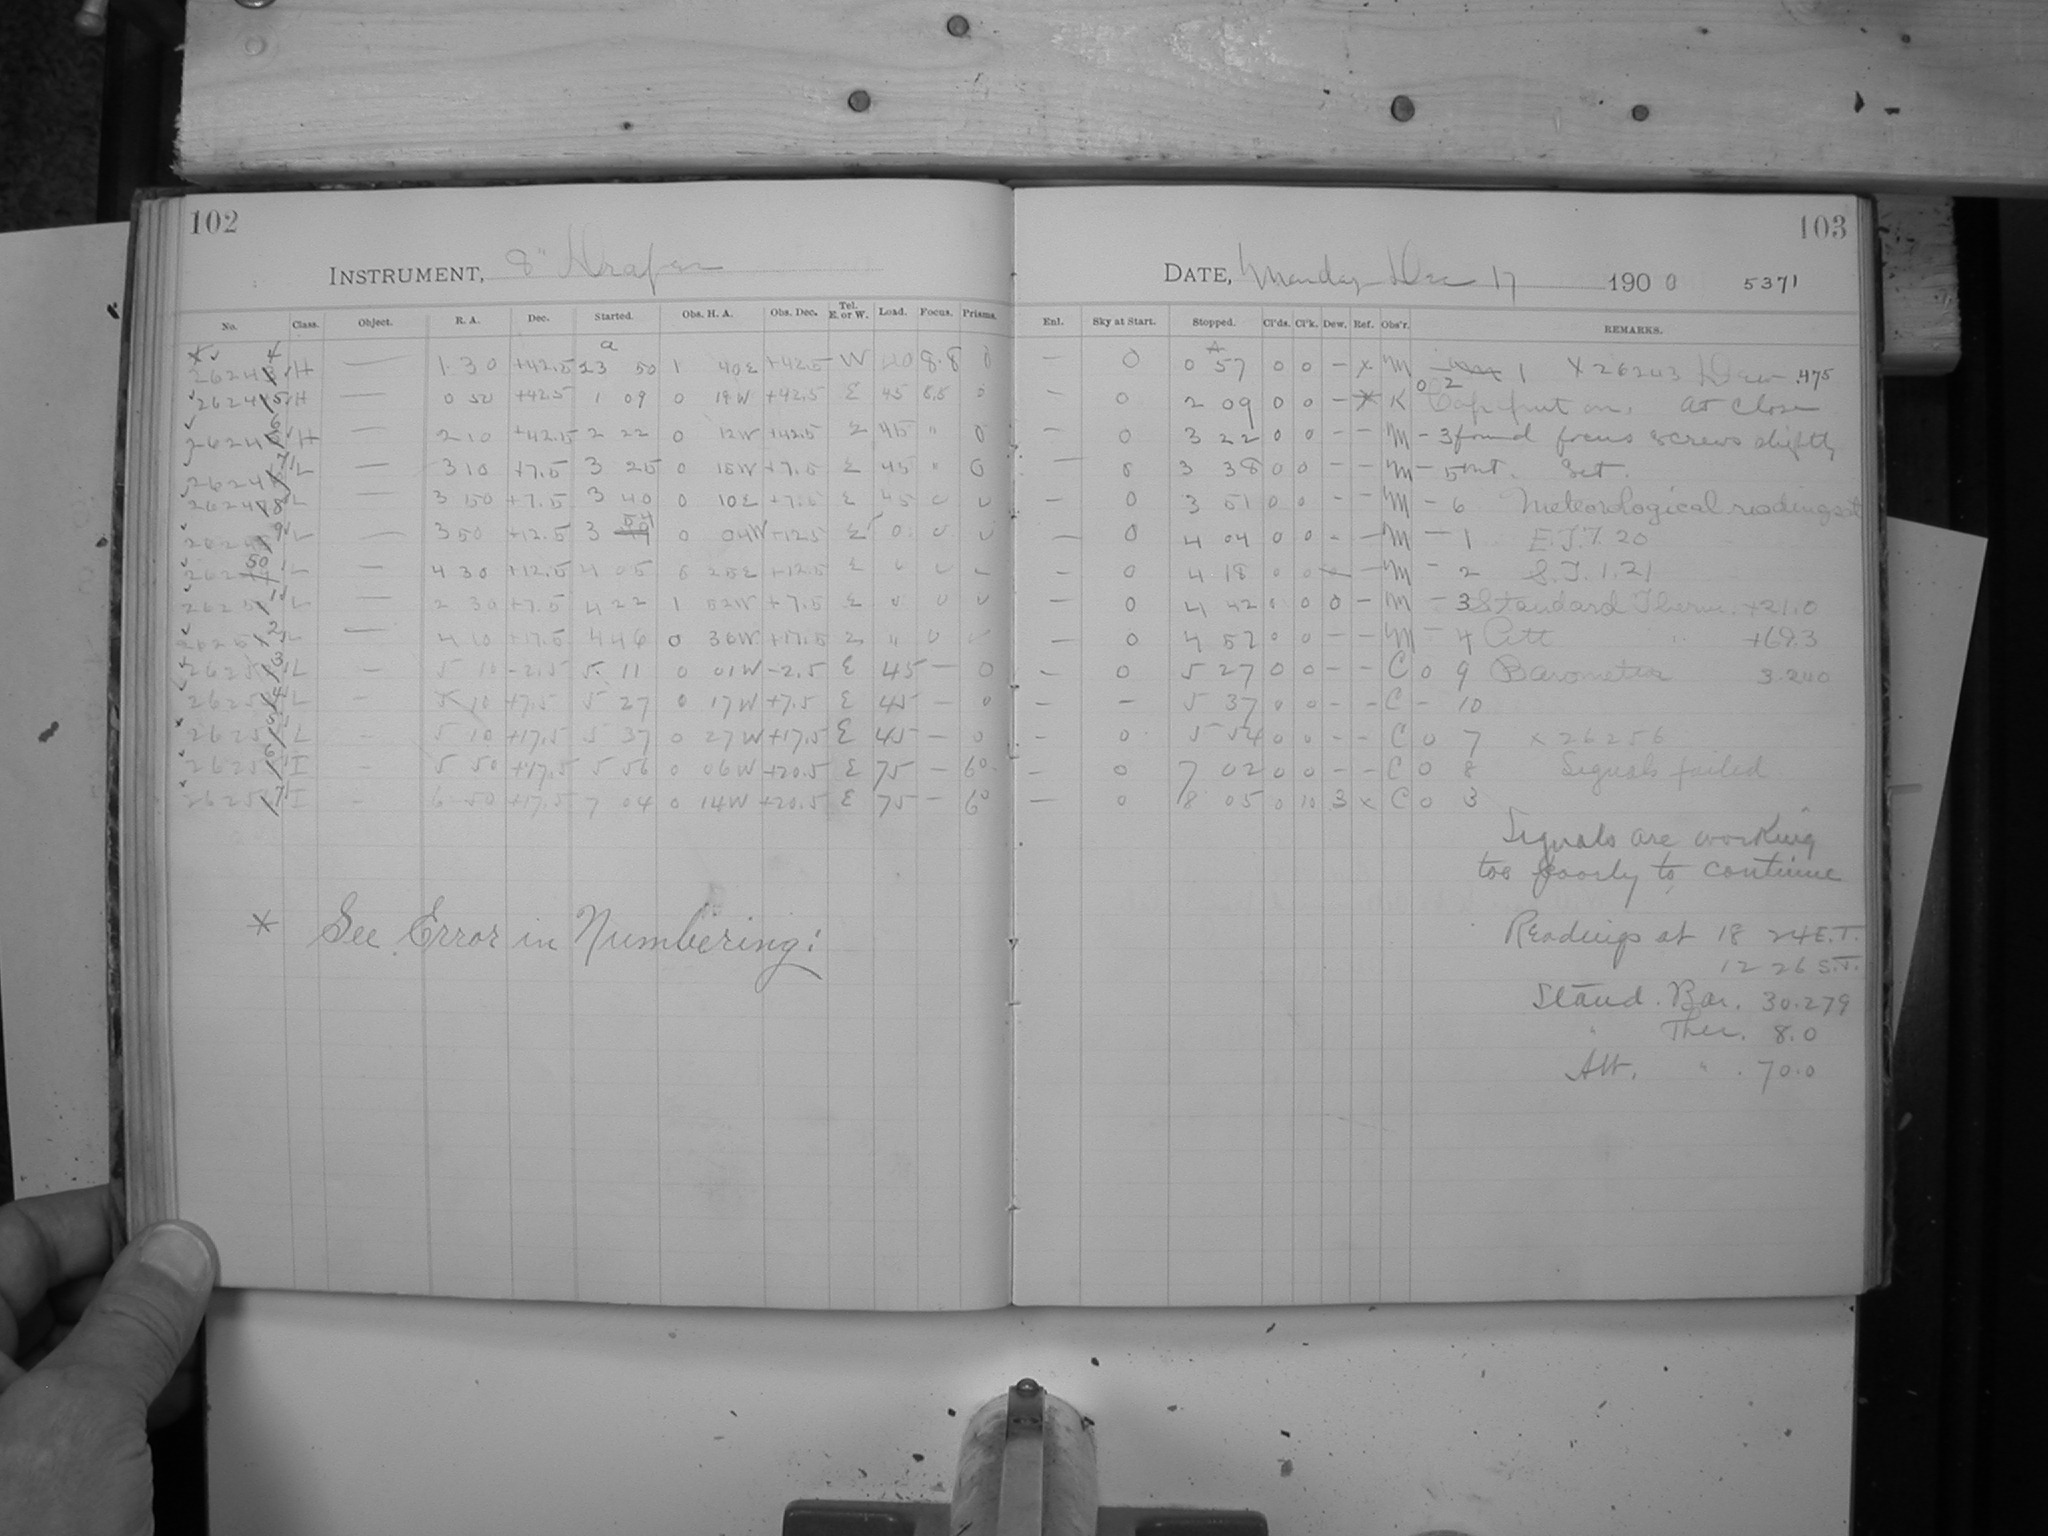 102
INSTRUMENT, 8" Draper
No. Class. Object. R. A. Dec. Started. Obs. H. A. Obs. Dec. Tel. E. or W. Load. Focus. Prisms.
H — 1 30 +42.5 23 50 1 40E +42.5 W 8.8 0
H — 0 50 +42.5 1 09 0 19W +42.5 E 45 0
H — 2 10 +42.5 2 22 0 12W +42.5 E 45 " 0
L — 3 10 +7.5 3 25 0 15W +7.5 E 45 " 0
L — 3 50 +7.5 3 40 0 10E +7.5 E 45
L — 3 50 +12.5 3 54 0 04W +12.5 E
4 30 +12.5 4 05 0 25E +12.5 E
L — 2 30 +7.5 4 22 1 52W +7.5 E
L — 4 10 +17.5 4 46 0 36W +17.5 E "
L — 5 10 -2.5 5 11 0 01W -2.5 E 45 — 0
L - 5 10 +7.5 5 27 0 17W +7.5 E 45 — 0
L - 5 10 +17.5 5 37 0 27W +17.5 E 45 — 0
I - 5 50 +17.5 5 56 0 06W +20.5 E 75 — 60
I - 6 50 +17.5 7 04 0 14W +20.5 E 75 — 60
* See Error in Numbering:
103
DATE, Monday Dec 17 1900 5371
Enl. Sky at Start. Stopped. Cl'ds. Cl'k. Dew. Ref. Obs'r. REMARKS.
— 0 0 57 0 0 — x M 1 x 26243 Dew .475
— 0 2 09 0 0 — K 0 2 on. At Close
— 0 3 22 0 0 - - M - 3 found focus screws slightly
— 0 3 38 0 0 - - M - 5 out. Set.
— 0 3 51 0 0 - - M - 6 Meteorological readings at
— 0 4 04 0 0 - - M - 1 E.T. 7.20
— 0 4 18 0 0 - - M - 2 S.T. 1.21
— 0 4 42 0 0 0 - M - 3 Standard Therm. +21.0
— 0 4 57 0 0 - - M - 4 Att " +69.3
— 0 5 27 0 0 - - C 0 9 Barometer 3.240
— - 5 37 0 0 - - C - 10
— 0 5 54 0 0 - - C 0 7 x 26256
— 0 7 02 0 0 - - C 0 8 Signals failed
— 0 8 05 0 10 3 x C 0 3
Signals are working
too poorly to continue
Readings at 18 24 E.T.
12 26 S.T.
Stand. Bar. 30.279
" Ther. 8.0
Att. " . 70.0